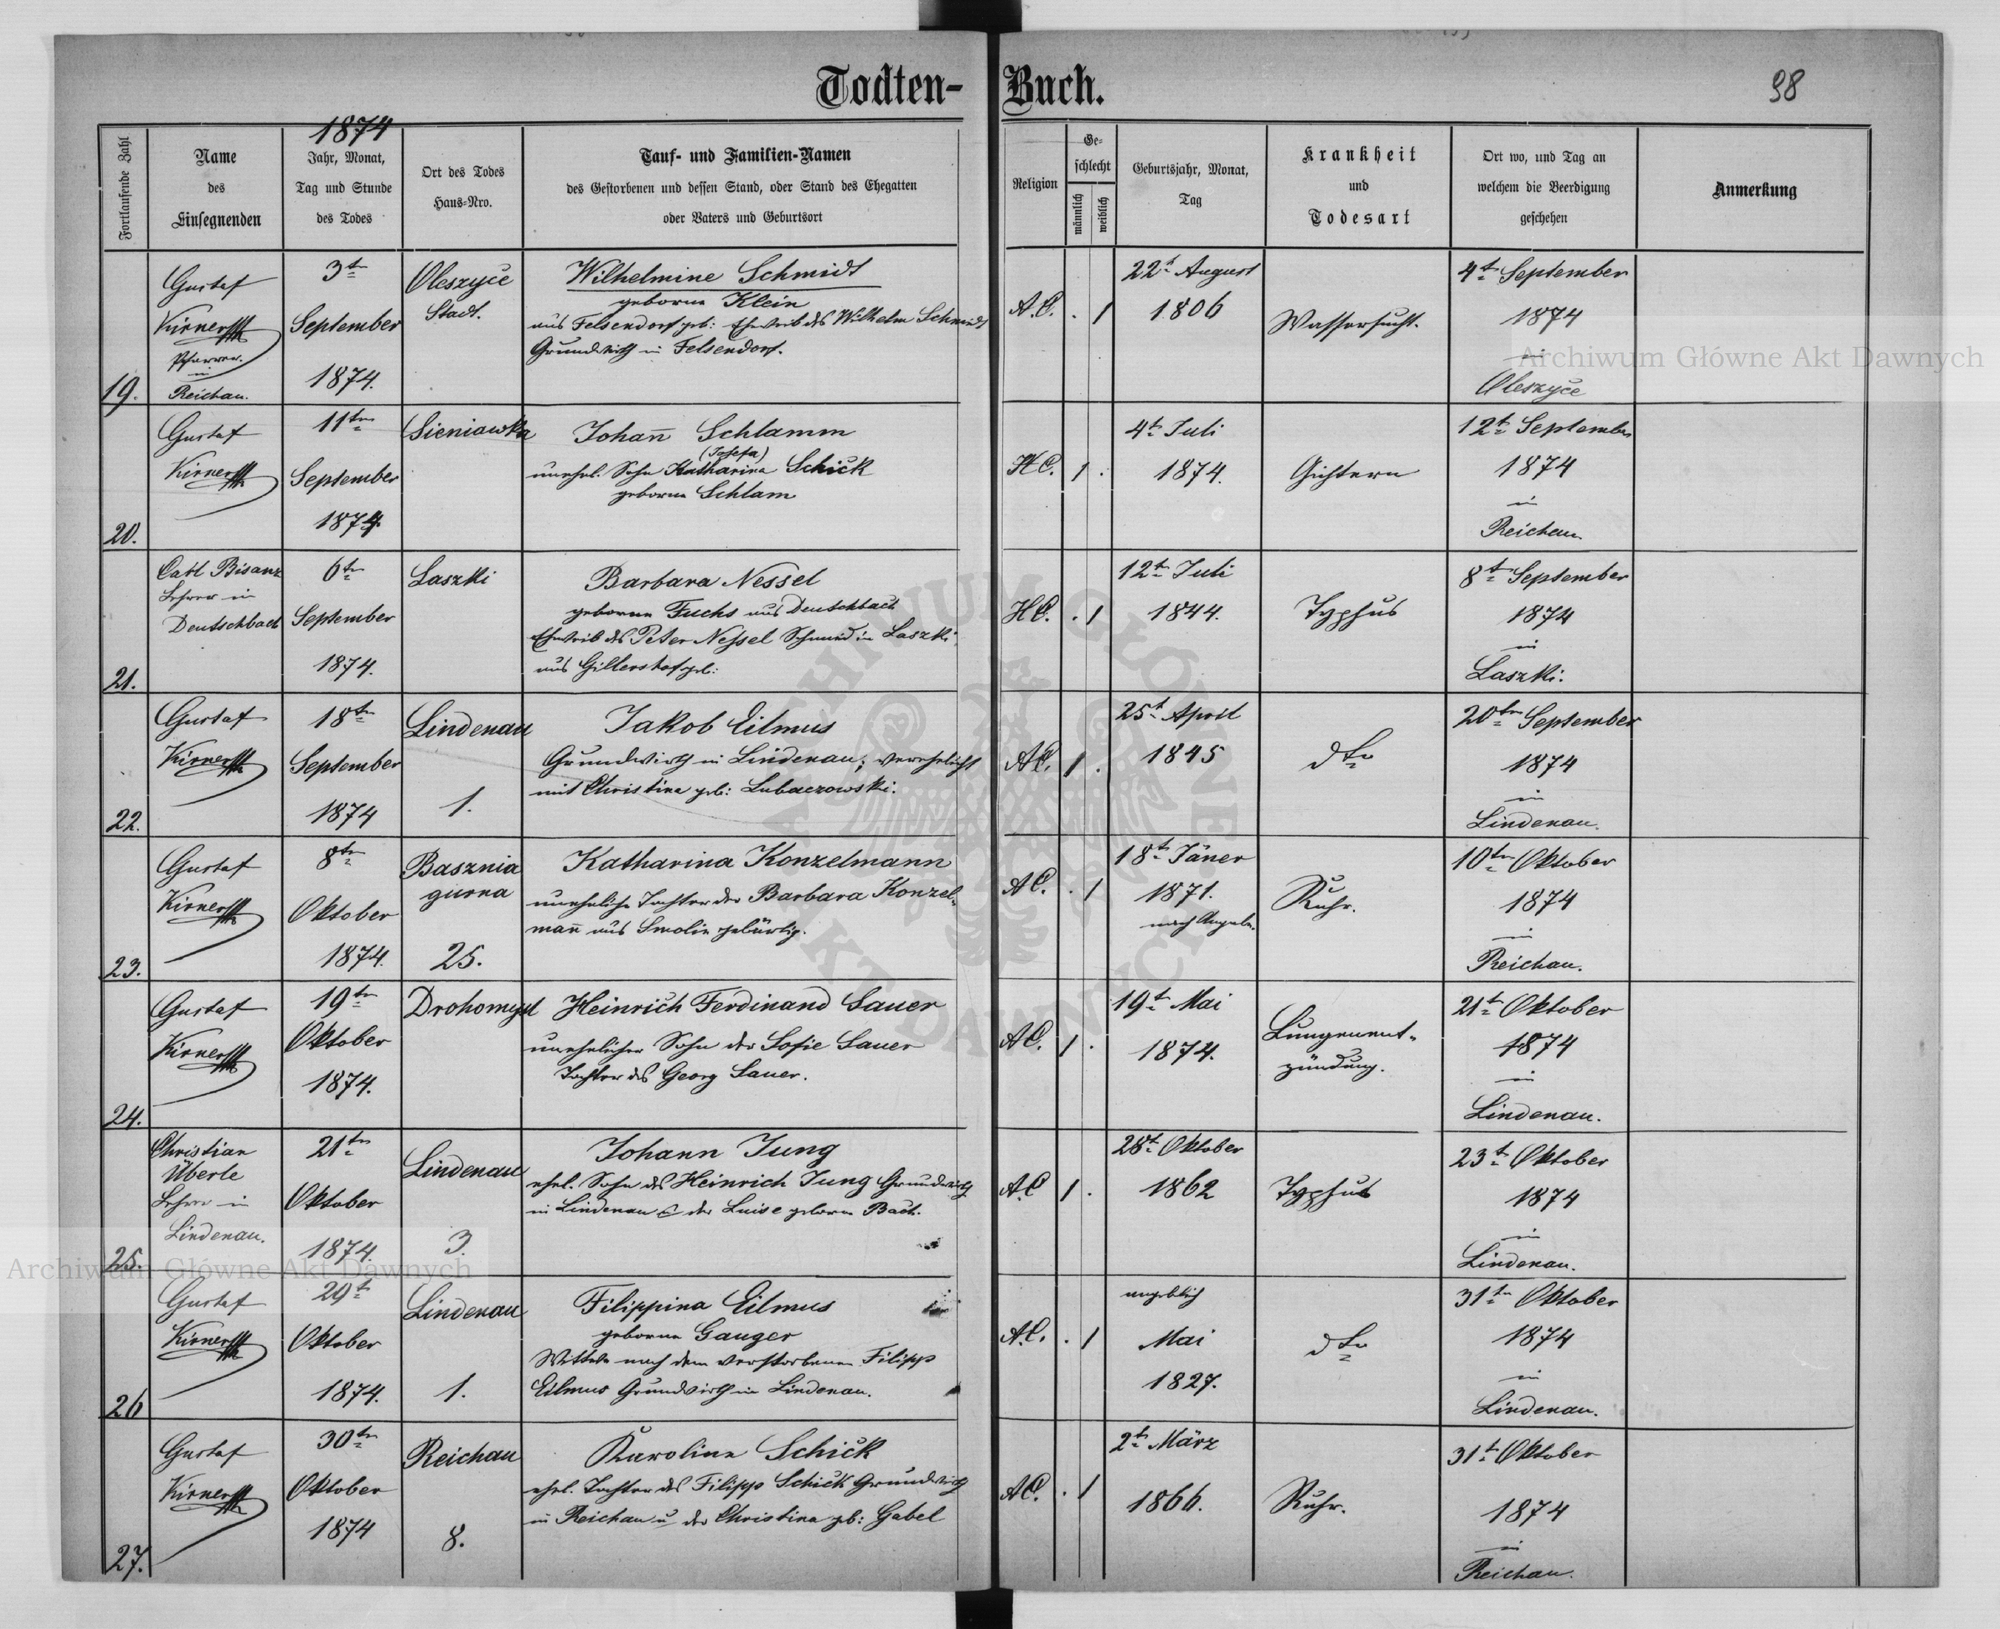 Todten-Buch.
98
1874
Fortlaufende Zahl
Name
des
Einsegnenden
Jahr, Monat,
Tag und Stunde
des Todes
Ort des Todes
Haus-Nro.
Tauf- und Familien-Namen
des Gestorbenen und dessen Stand, oder Stand des Ehegatten
oder Vaters und Geburtsort
Religion
Ge-
schlecht
männlich
weiblich
Geburtsjahr, Monat,
Tag
Krankheit
und
Todesart
Ort wo, und Tag an
welchem die Beerdigung
geschehen
Anmerkung
19.
Gustaf
Kirner
Pfarrer
in
Reichau.
3tn
September
1874.
Oleszyce
Stadt.
Wilhelmine Schmidt
geborne Klein
aus Felsendorf geb: Eheweib des Wilhelm Schmidt
Grundwirth in Felsendorf.
A.C.
. 1
22t August
1806
Wassersucht.
4tn September
1874
in
Oleszyce
20.
Gustaf
Kirner
11tn
September
1874.
Sieniawka
Johan̄ Schlamm
(Josefa)
unehel. Sohn Katharina Schick
geborne Schlam
H.C.
1 .
4t Juli
1874.
Gichtern
12t September
1874
in
Reichau
21.
Carl Bisanz
Lehrer in
Deutschbach
6tn
September
1874.
Laszki
Barbara Nessel
geborne Fuchs aus Deutschbach
Eheweib des Peter Nessel Schmied in Laszki,
aus Gillershof geb:
H.C.
. 1
12t Juli
1844.
Typhus
8t September
1874
in
Laszki.
22.
Gustaf
Kirner
18tn
September
1874
Lindenau
1.
Jakob Eilmus
Grundwirth in Lindenau, verehelicht
mit Christina geb: Lubaczowski.
A.C.
1 .
25t April
1845
dto
20tn September
1874
in
Lindenau.
23.
Gustaf
Kirner
8tn
Oktober
1874.
Basznia
gurna
25.
Katharina Konzelmann
uneheliche Tochter der Barbara Konzel-
man̄ aus Smolin gebürtig.
A.C.
. 1
18t Jäner
1871.
nach Angabe.
Ruhr.
10tn Oktober
1874
in
Reichau.
24.
Gustaf
Kirner
19tn
Oktober
1874.
Drohomysl
Heinrich Ferdinand Sauer
unehelicher Sohn der Sofie Sauer
Tochter des Georg Sauer.
A.C.
1 .
19t Mai
1874.
Lungenent-
zündung.
21t Oktober
1874
in
Lindenau.
25.
Christian
Überle
Lehrer in
Lindenau.
21tn
Oktober
1874.
Lindenau
3.
Johann Jung
ehel. Sohn des Heinrich Jung Grundwirth
in Lindenau & der Luise geborne Bach.
A.C
1 .
28t Oktober
1862
Typhus
23t Oktober
1874
in
Lindenau.
26
Gustaf
Kirner
29t
Oktober
1874.
Lindenau
1.
Filippina Eilmus
geborne Gauger
Wittwe nach dem verstorbenen Filipp
Eilmus Grundwirth in Lindenau.
A.C.
. 1
angeblich
Mai
1827.
dto
31tn Oktober
1874
in
Lindenau.
27.
Gustaf
Kirner
30tn
Oktober
1874
Reichau
8.
Karoline Schick
ehel. Tochter des Filipp Schick Grundwirth
in Reichau u der Christina geb: Gabel
A.C.
. 1
2t März
1866.
Ruhr.
31t Oktober
1874
in
Reichau.
Archiwum Główne Akt Dawnych
Archiwum Główne Akt Dawnych
ARCHIWUM GŁÓWNE AKT DAWNYCH